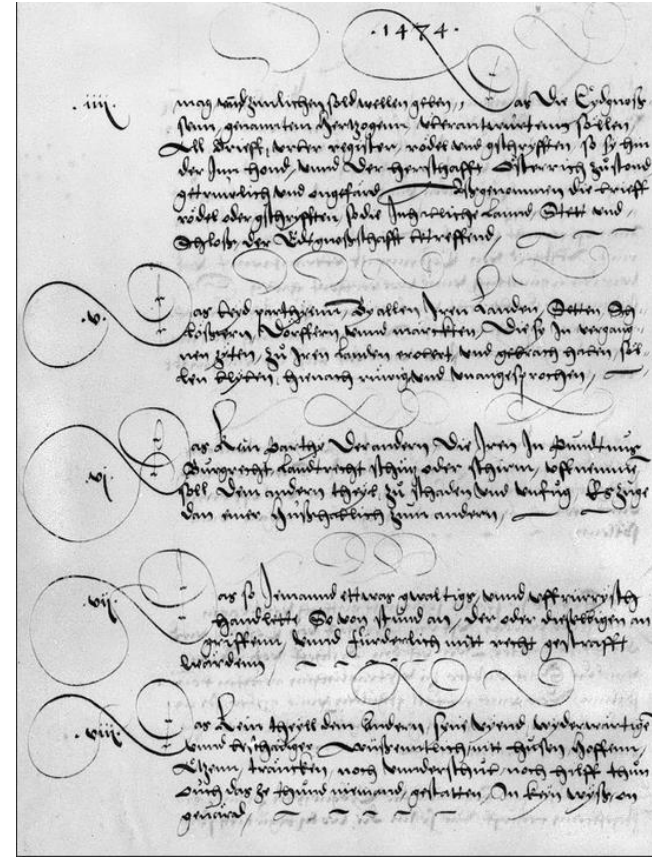 · 1474 ·
·iiij· mag und zimlichen sold wellen geben, Das Die Eydgnoß-
senn, genanntem Hertzogenn, überantwurtenn söllen
All Brieff, urber register, rödel und gschryfften, so sy hin
der Jnn hond, unnd Der herschafft Österrich zu stond
getrüwlich und ongefärd, Ußgenommen die brieff
rödel oder gschryfften, so die Lannd, Stett und
Schloss, der Eidtgnoschafft betreffend,
·v· Das beyd parthyenn, By allen Jren Landen, Stetten, Sch-
lössern, Dörffern, unnd märckten, Die sy In vergang-
nen zyten, zu Jren handen erobert, und gebracht haben, söl-
len blyben, hienach rüwig und unangesprochen,
·vi· Das kein parthy Der andern Die Jren In pündtnuß
Burgrecht, Landtrecht schutz oder schirm, uffnemme
soll, Dem andern theyl zu schaden und unfug, Es züge
dan einer hußhablich zum andern,
·vii· Das so Jemannd ettwas gwaltigs, unnd uffrürrysch
handlette, So von stund an, der oder dieselbigen an
griffenn, unnd fürderlich mitt recht gestrafft
wärdenn
·viii· Das kein theyll dem andern, syne vyend, wyderwärtige
unnd beschädiger, wüssenntlich, nitt husen, Hoffenn,
Etzenn, träncken, noch unnderschub, noch hilff thun
ouch das ze thund niemand, gestatten, In kein wyß, on
geuärd,